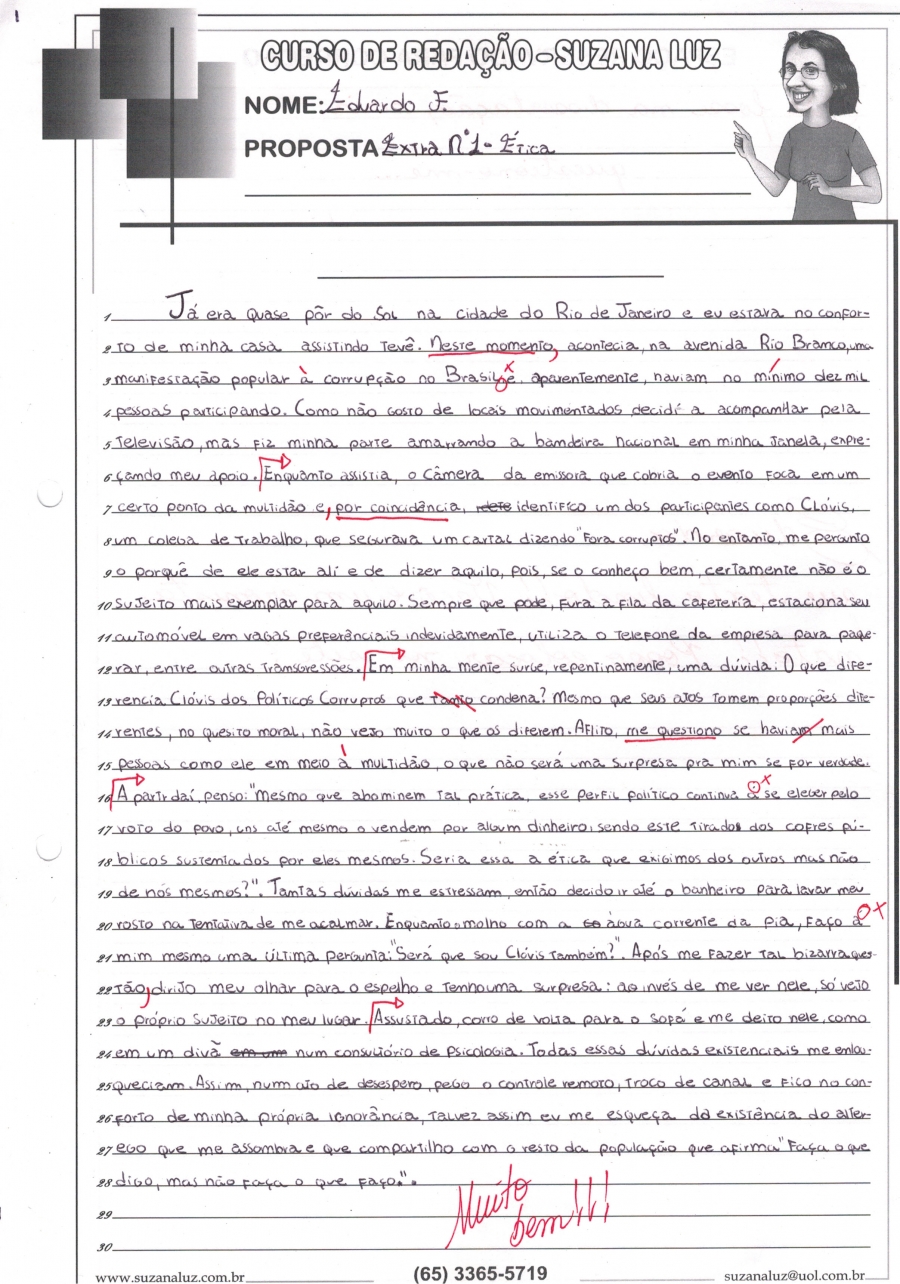 1
CURSO DE REDAÇÃO - SUZANA LUZ
NOME: Eduardo F.
PROPOSTA Extra Nº1 - Ética
1 Já era quase pôr do sol na cidade do Rio de Janeiro e eu estava no confor-
2 to de minha casa assistindo tevê. Neste momento, acontecia, na avenida Rio Branco, uma
3 manifestação popular à corrupção no Brasil e, aparentemente, haviam no mínimo dez mil
4 pessoas participando. Como não gosto de locais movimentados decidi a acompanhar pela
5 televisão, mas fiz minha parte amarrando a bandeira nacional em minha janela, expre-
6 çando meu apoio. Enquanto assistia, o câmera da emissora que cobria o evento foca em um
7 certo ponto da multidão e, por coincidência, identifico um dos participantes como Clóvis,
8 um colega de trabalho, que segurava um cartal dizendo "Fora corruptos". No entanto, me pergunto
9 o porquê de ele estar ali e de dizer aquilo, pois, se o conheço bem, certamente não é o
10 sujeito mais exemplar para aquilo. Sempre que pode, fura a fila da cafeteria, estaciona seu
11 automóvel em vagas preferênciais indevidamente, utiliza o telefone da empresa para paque-
12 rar, entre outras transgressões. Em minha mente surge, repentinamente, uma dúvida: O que dife-
13 rencia Clóvis dos políticos corruptos que tanto condena? Mesmo que seus atos tomem proporções dife-
14 rentes, no quesito moral, não vejo muito o que os diferem. Aflito, me questiono se haviam mais
15 pessoas como ele em meio à multidão, o que não será uma surpresa pra mim se for verdade.
16 A partir daí, penso: "Mesmo que abominem tal prática, esse perfil político continua a se eleger pelo
17 voto do povo, uns até mesmo o vendem por algum dinheiro, sendo este tirados dos cofres pú-
18 blicos sustentados por eles mesmos. Seria essa a ética que exigimos dos outros mas não
19 de nós mesmos?". Tantas dúvidas me estressam, então decido ir até o banheiro para lavar meu
20 rosto na tentativa de me acalmar. Enquanto o molho com a água corrente da pia, faço à
21 mim mesmo uma última pergunta: "Será que sou Clóvis também?". Após me fazer tal bizarra ques-
22 tão, dirijo meu olhar para o espelho e tenho uma surpresa: ao invés de me ver nele, só vejo
23 o próprio sujeito no meu lugar. Assustado, corro de volta para o sofá e me deito nele, como
24 em um divã num consultório de psicologia. Todas essas dúvidas existenciais me enlou-
25 queciam. Assim, num ato de desespero, pego o controle remoto, troco de canal e fico no con-
26 forto de minha própria ignorância, talvez assim eu me esqueça da existência do alter-
27 ego que me assombra e que compartilho com o resto da população que afirma "Faça o que
28 digo, mas não faça o que faço.".
Muito
bem!!!
29
30
www.suzanaluz.com.br (65) 3365-5719 suzanaluz@uol.com.br